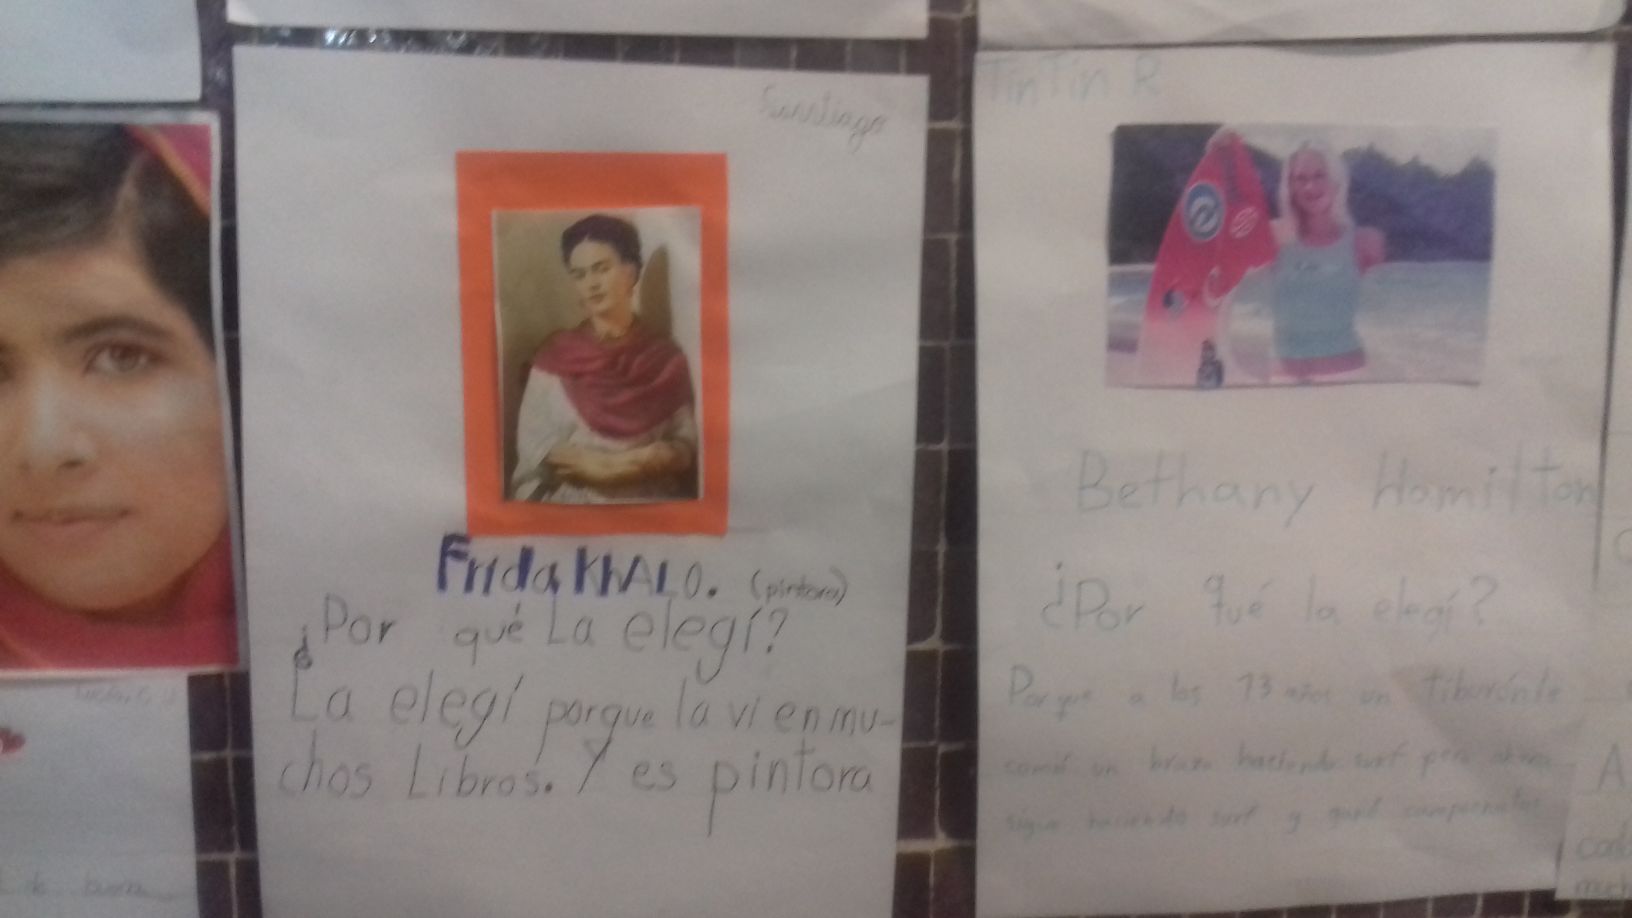 Santiago
Frida KHALO. (pintora)
¿Por qué La elegí?
La elegí porque la vi en mu-
chos Libros. Y es pintora
TinTin R
Bethany Hamilton
¿Por qué la elegí?
Porque a los 13 años un Tiburón le
comió un brazo haciendo surf pero ahora
sigue haciendo surf y ganó campeonatos